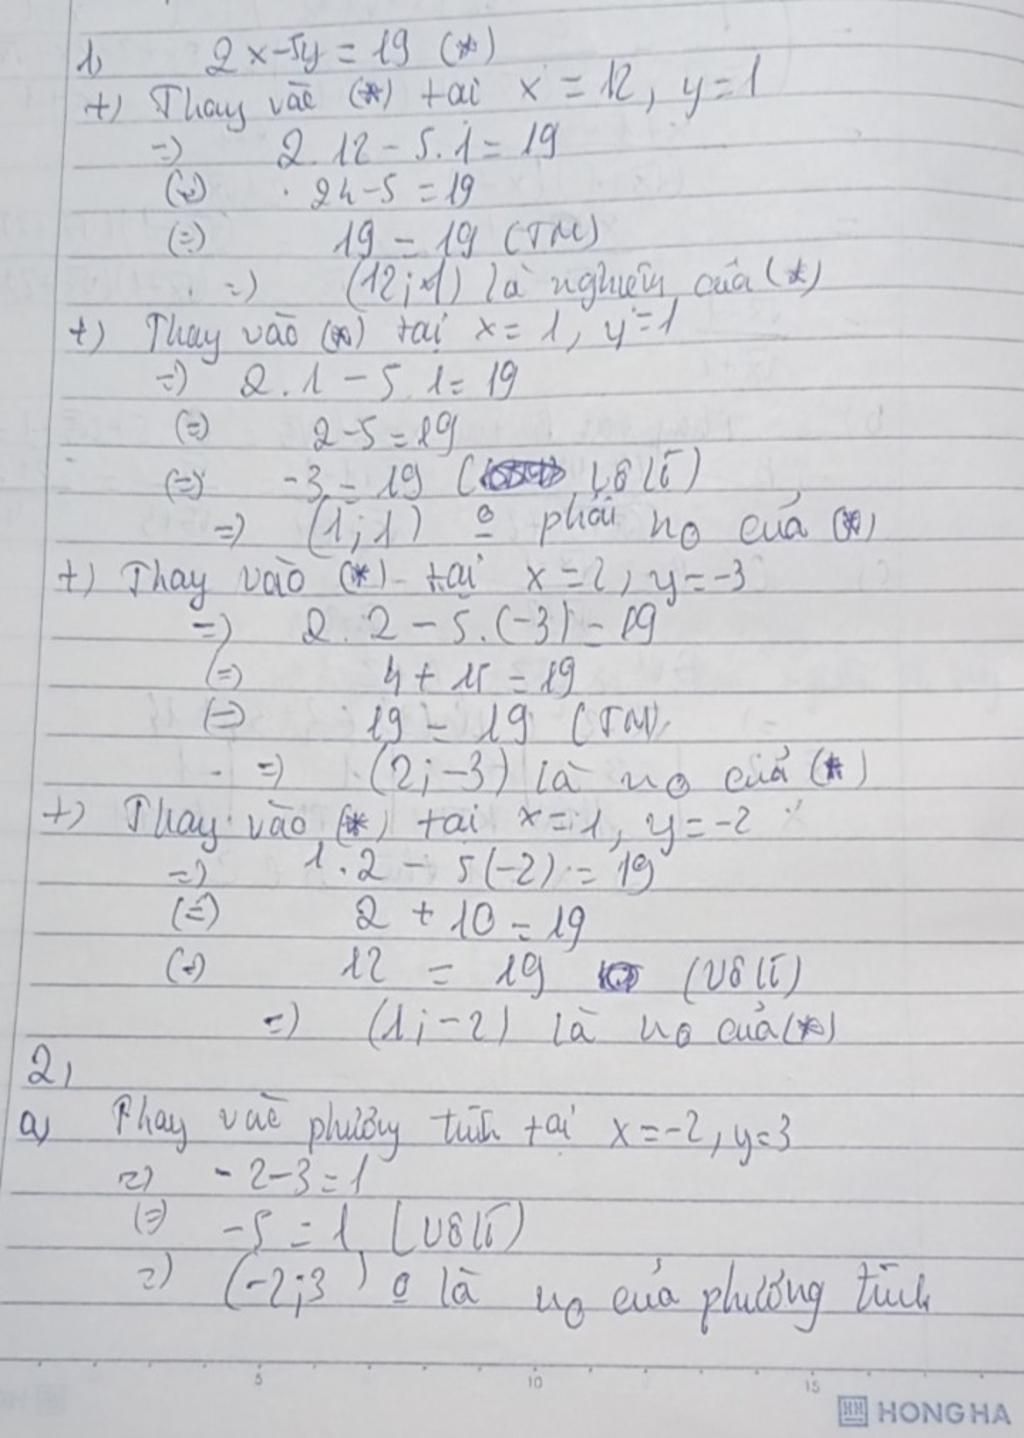 1, 2x-5y = 19 (*)
+) Thay vào (*) tại x = 12, y = 1
=) 2.12 - 5.1 = 19
(=) 24-5 = 19
(=) 19 = 19 (TM)
=) (12;1) là nghiệm của (*)
+) Thay vào (*) tại x = 1, y = 1
=) 2.1 - 5.1 = 19
(=) 2-5 = 19
(=) -3 = 19 (Vô lí)
=) (1;1) o phải no của (*)
+) Thay vào (*) tại x = 2, y = -3
=) 2.2 - 5.(-3) = 19
(=) 4 + 15 = 19
(=) 19 = 19 (TM)
=) (2;-3) là no của (*)
+) Thay vào (*) tại x = 1, y = -2
=) 1.2 - 5(-2) = 19
(=) 2 + 10 = 19
(=) 12 = 19 (Vô lí)
=) (1;-2) là no của (*)
2,
a, Thay vào phương trình tại x = -2, y = 3
=) -2-3 = 1
(=) -5 = 1 (Vô lí)
=) (-2;3) o là no của phương trình
5 10 15
HH HONG HA